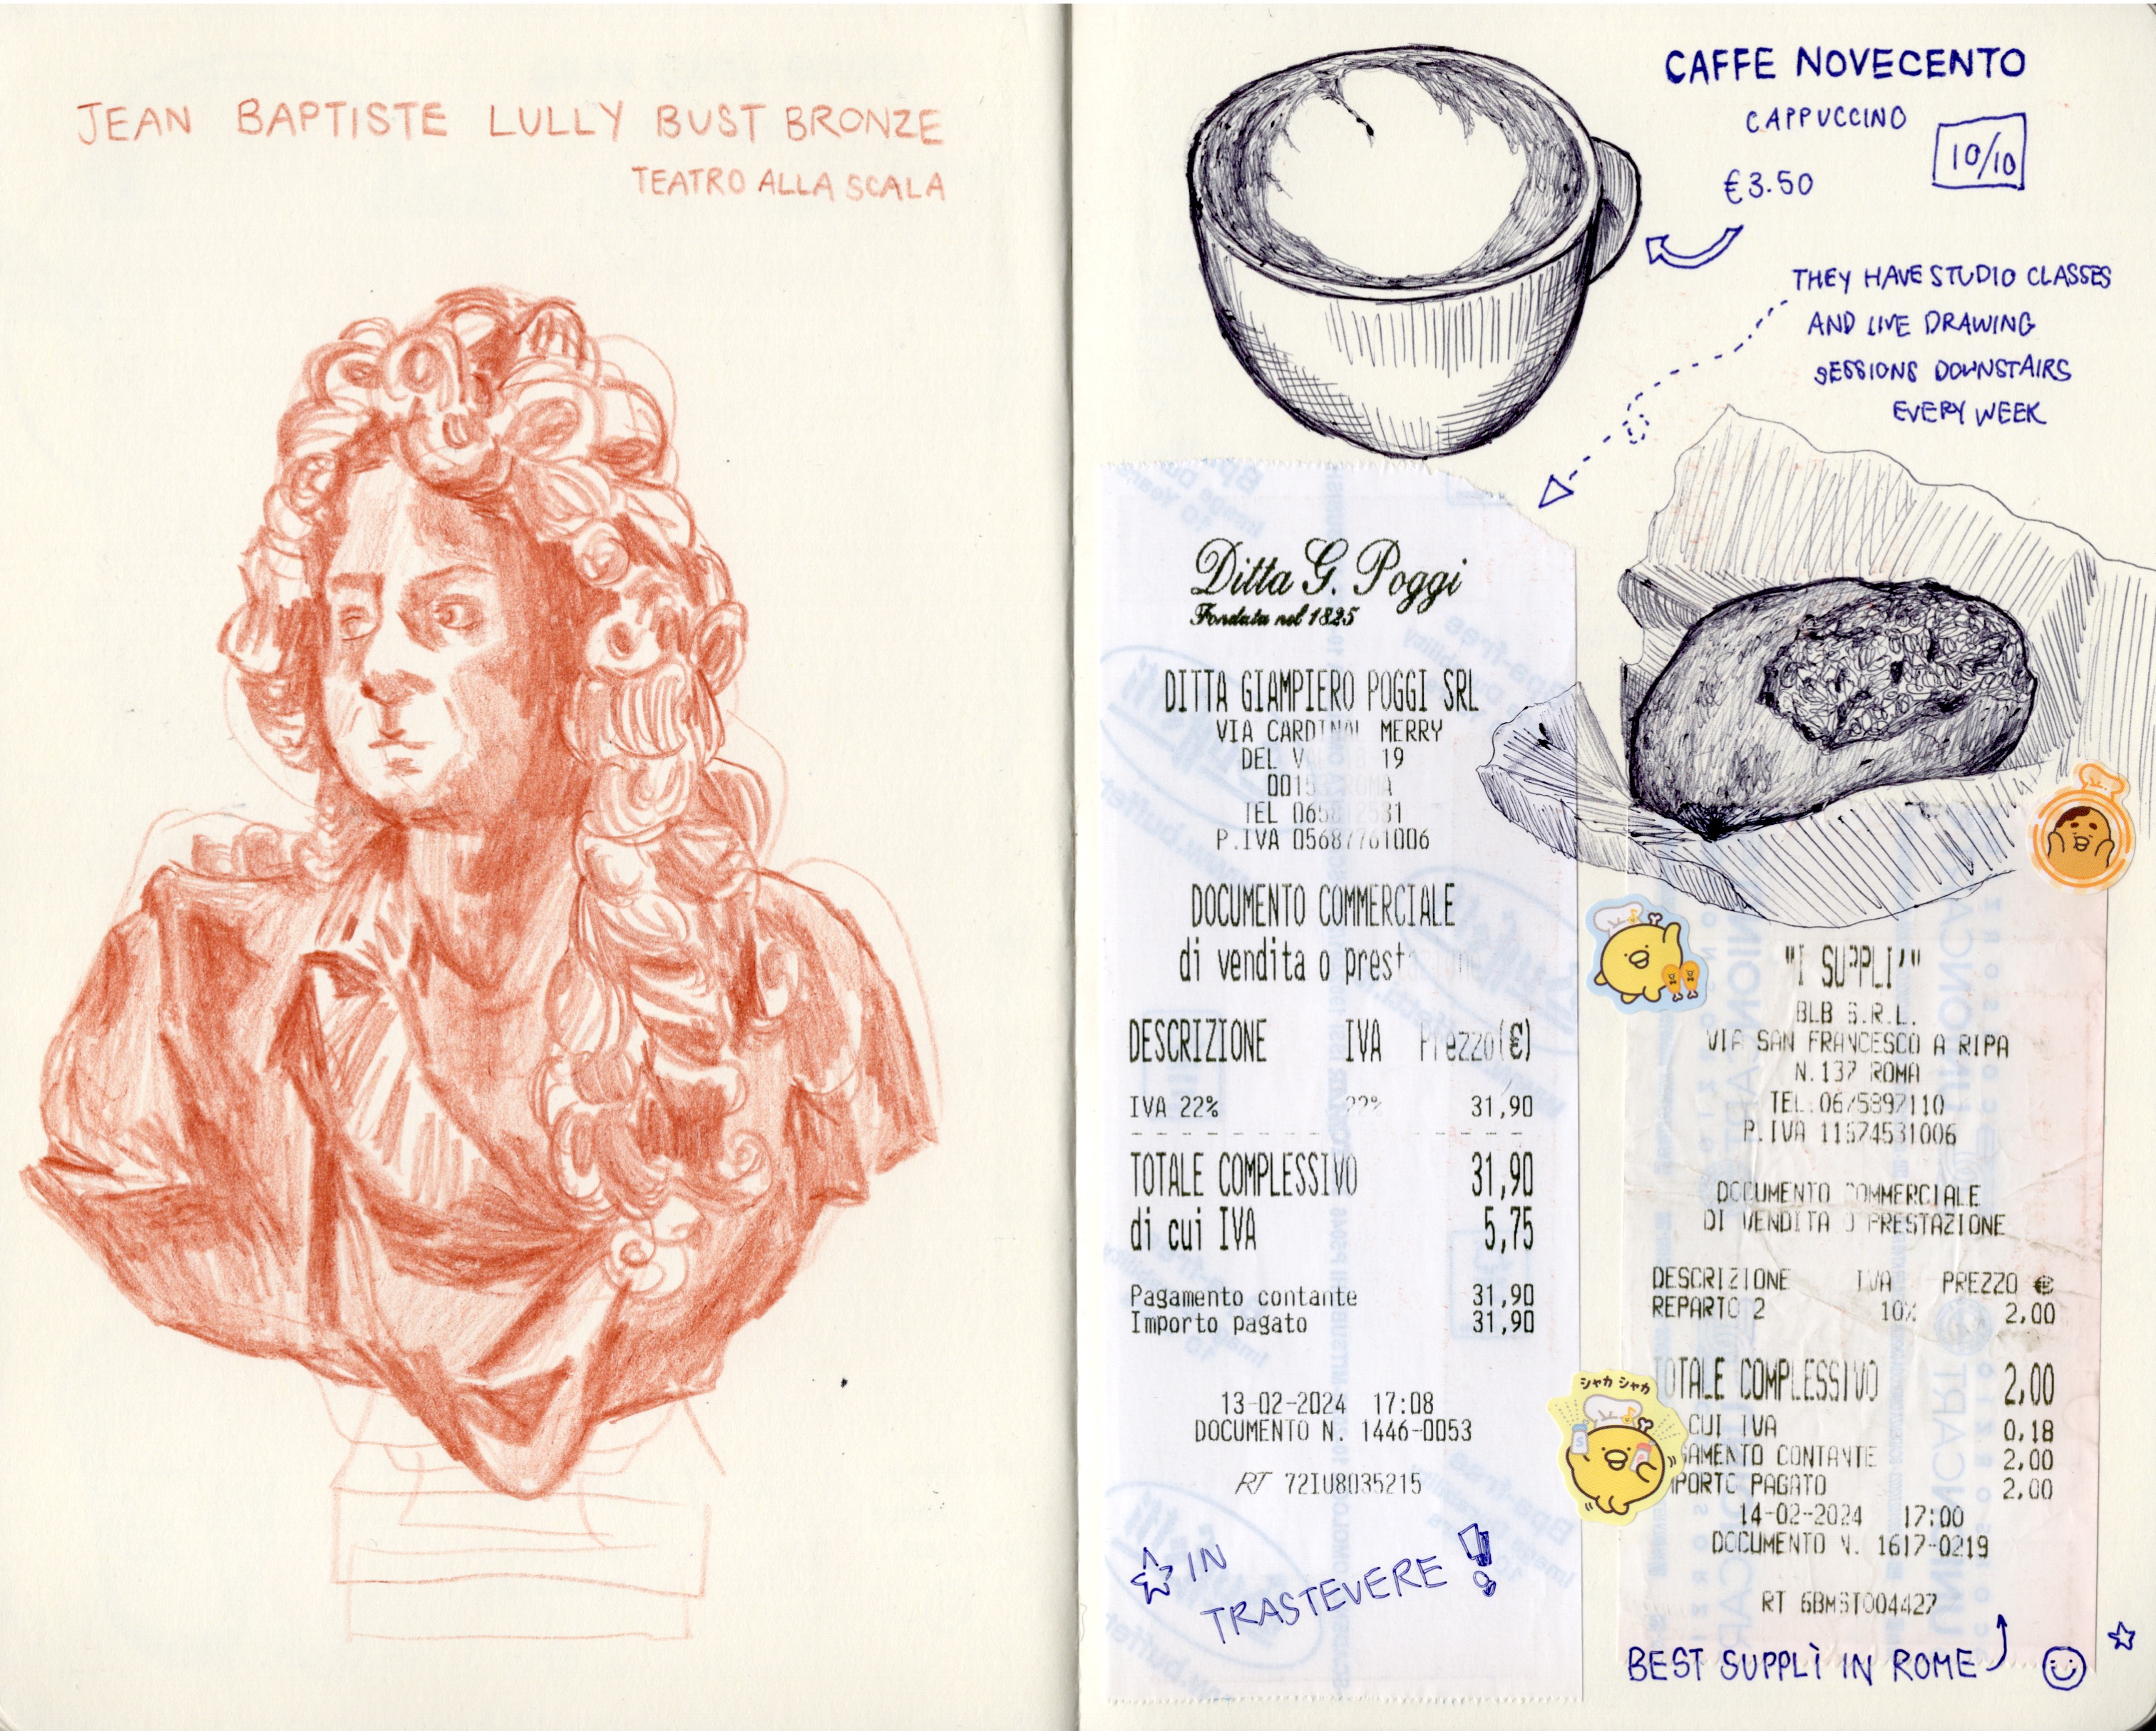 JEAN BAPTISTE LULLY BUST BRONZE
TEATRO ALLA SCALA
CAFFE NOVECENTO
CAPPUCCINO
10/10
€3.50
THEY HAVE STUDIO CLASSES
AND LIVE DRAWING
SESSIONS DOWNSTAIRS
EVERY WEEK
Ditta G. Poggi
Fondata nel 1825
DITTA GIAMPIERO POGGI SRL
VIA CARDINAL MERRY
DEL 19
ROMA
TEL
P.IVA 05687761006
DOCUMENTO COMMERCIALE
di vendita o prest
DESCRIZIONE IVA Prezzo(€)
IVA 22% 22% 31,90
TOTALE COMPLESSIVO 31,90
di cui IVA 5,75
Pagamento contante 31,90
Importo pagato 31,90
13-02-2024 17:08
DOCUMENTO N. 1446-0053
RT 72IU8035215
IN
TRASTEVERE!
"I SUPPLI'"
BLB S.R.L.
VIA SAN FRANCESCO A RIPA
N.137 ROMA
TEL.065897110
P.IVA 11574531006
DOCUMENTO COMMERCIALE
DI VENDITA O PRESTAZIONE
DESCRIZIONE IVA PREZZO €
REPARTO 2 10% 2,00
TOTALE COMPLESSIVO 2,00
CUI IVA 0,18
GAMENTO CONTANTE 2,00
PORTO PAGATO 2,00
14-02-2024 17:00
DOCUMENTO N. 1617-0219
シャカ シャカ
BEST SUPPLÌ IN ROME